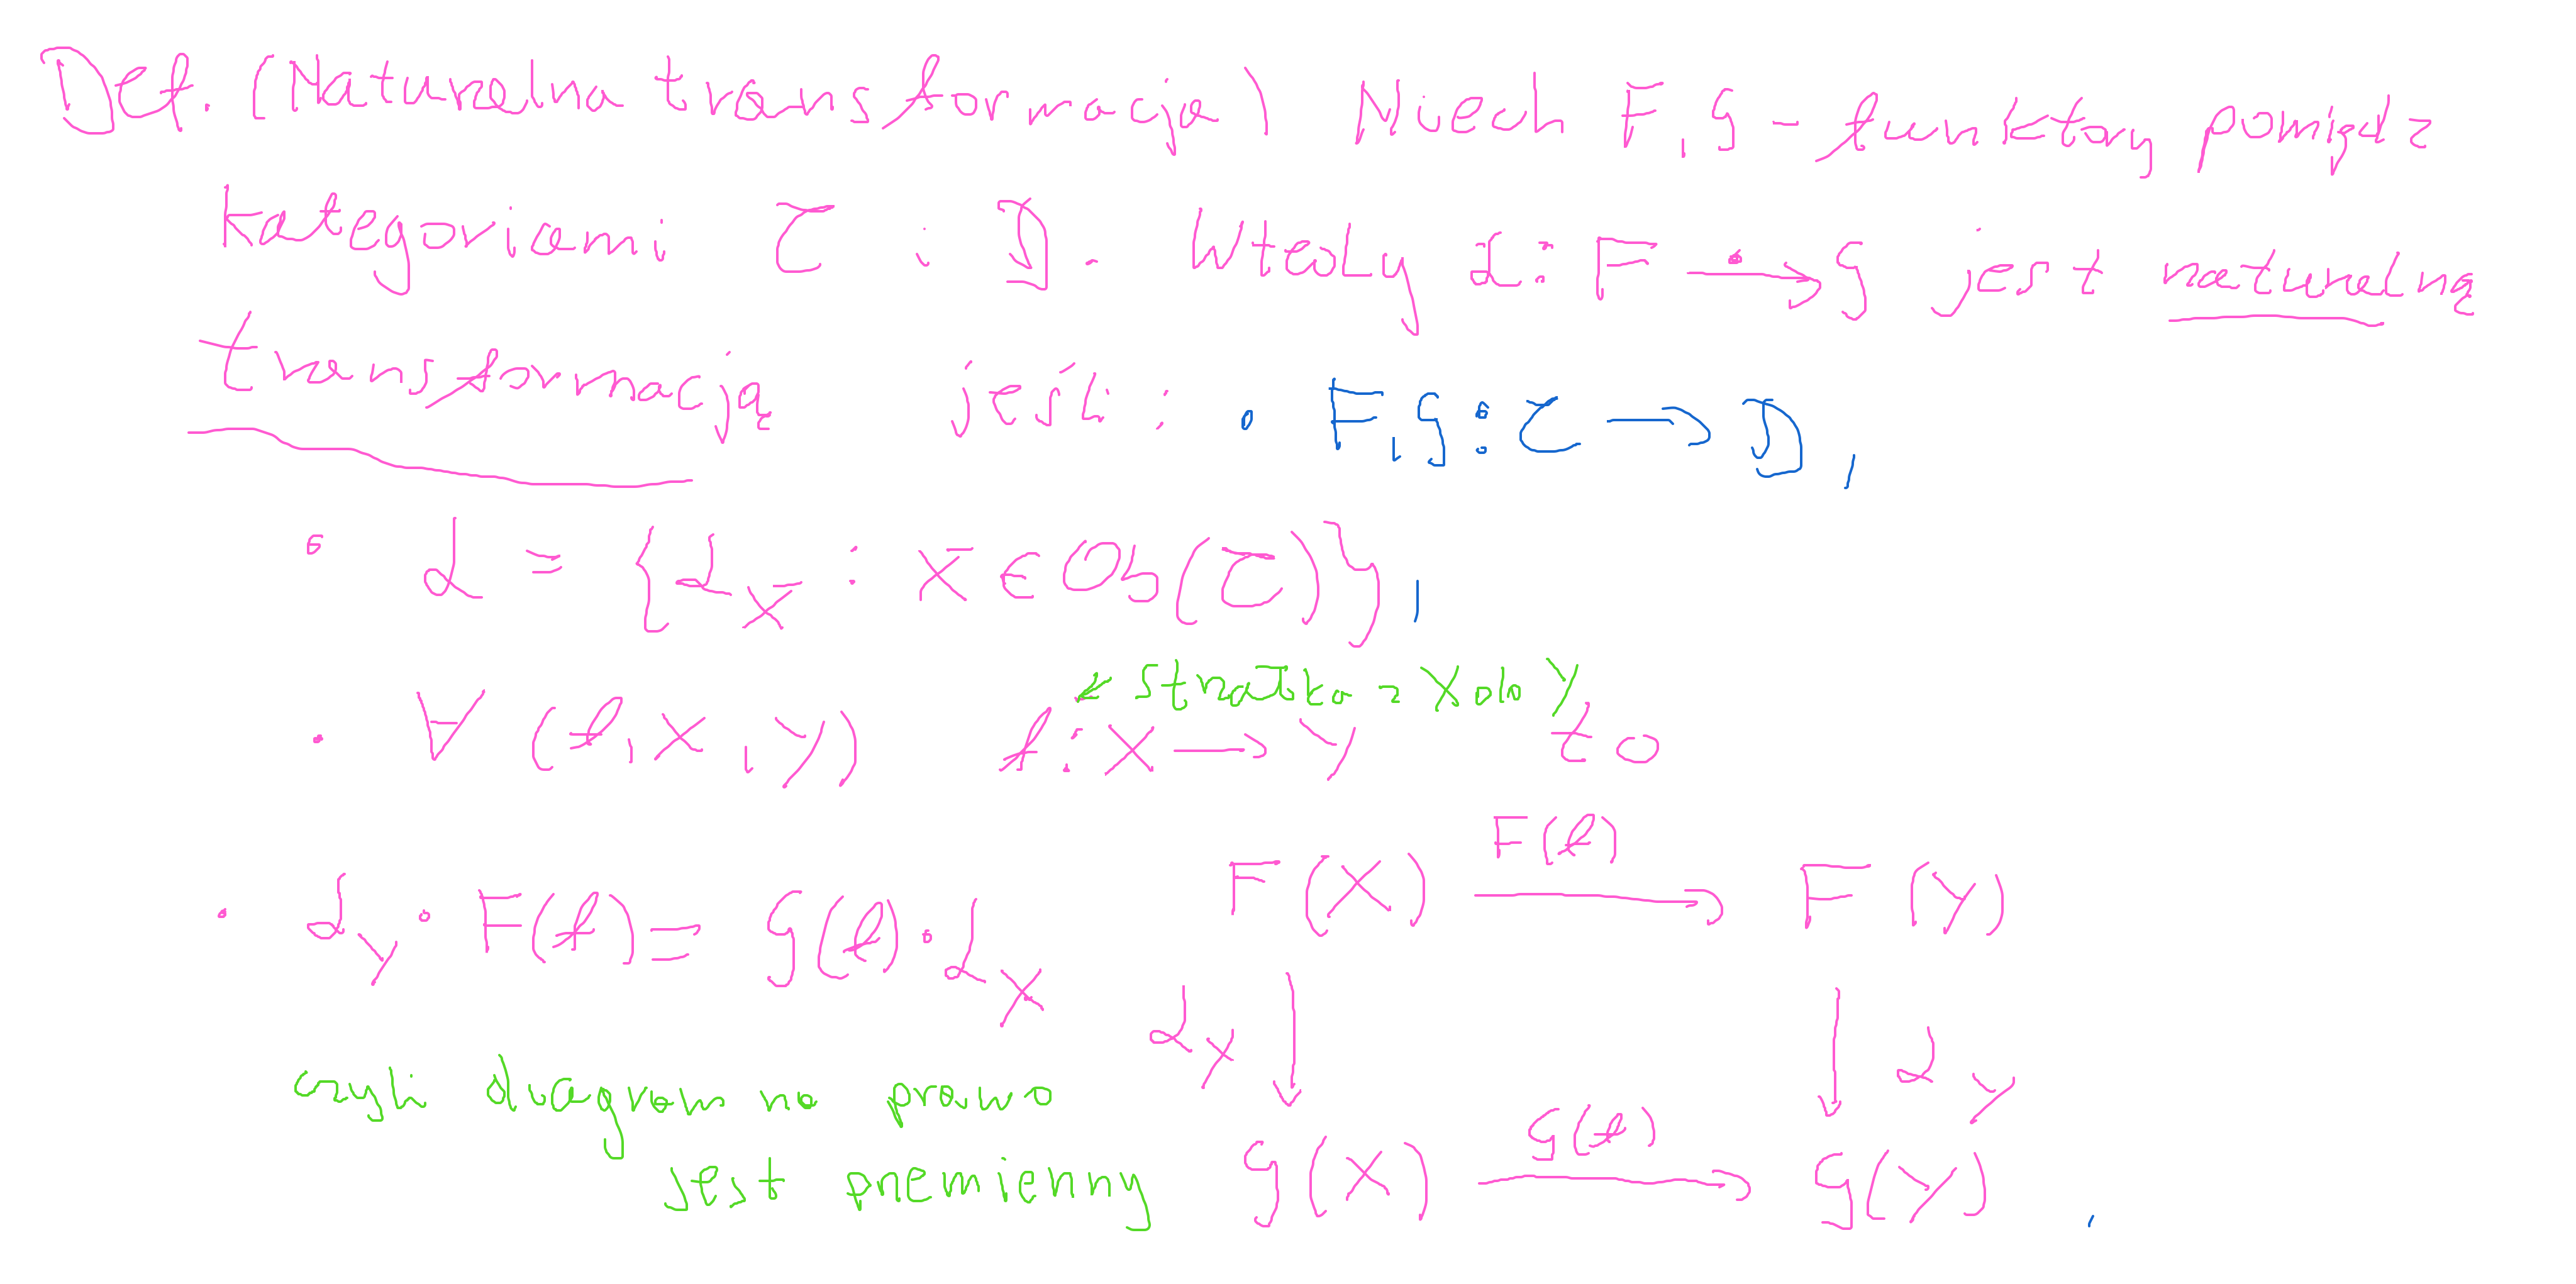 Def. (Naturalna transformacja) Niech F, G - funktory pomiędz
kategoriami C i D. Wtedy α: F ⟶ G jest naturalną
transformacją jeśli: • F, G: C → D,
• α = {α_X : X ∈ Ob(C)},
↙ strzałka z X do Y
• ∀ (f, X, Y) f: X → Y to
• α_Y ∘ F(f) = G(f) ∘ α_X
F(X) F(f) F(Y)
α_X ↓ ↓ α_Y
G(X) G(f) G(Y).
czyli diagram na prawo
jest przemienny